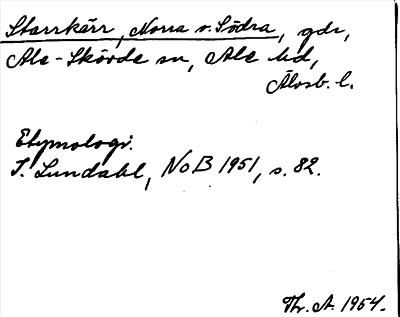 Starrkärr, Norra o. Södra, gdr,
Ale-Skövde sn, Ale hd,
Älvsb. l.
Etymologi.
I. Lundahl, NoB 1951, s. 82.
Th. A. 1954.